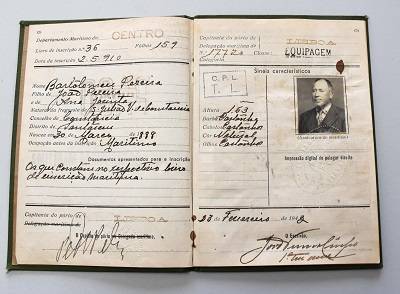 Departamento Marítimo do CENTRO
Livro de inscrição n.º 36 Fôlhas 159
Data da inscrição 2.5.910
Nome Bartolomeu Pereira
Filho de João Pereira
e de Ana Jacinta
Concelho de Constância
Distrito de Santarem
Nasceu em 30 de Março de 1888
Ocupação antes da inscrição Marítimo
Documentos apresentados para a inscrição
Os que constam no respectivo livro
de inscrição marítima.
Capitania do pôrto de LISBOA
Delegação marítima
O Capitão do pôrto
Capitania do pôrto de LISBOA
Delegação marítima
N.º 17720 Classe EQUIPAGEM
Categoria
C.P.L.
T. L.
Sinais característicos
Altura 1,63
Barba
Cabelos Castanhos
Côr Natural
Olhos Castanhos
Impressão digital do polegar direito
23 de Fevereiro de 1942
O Escrivão,